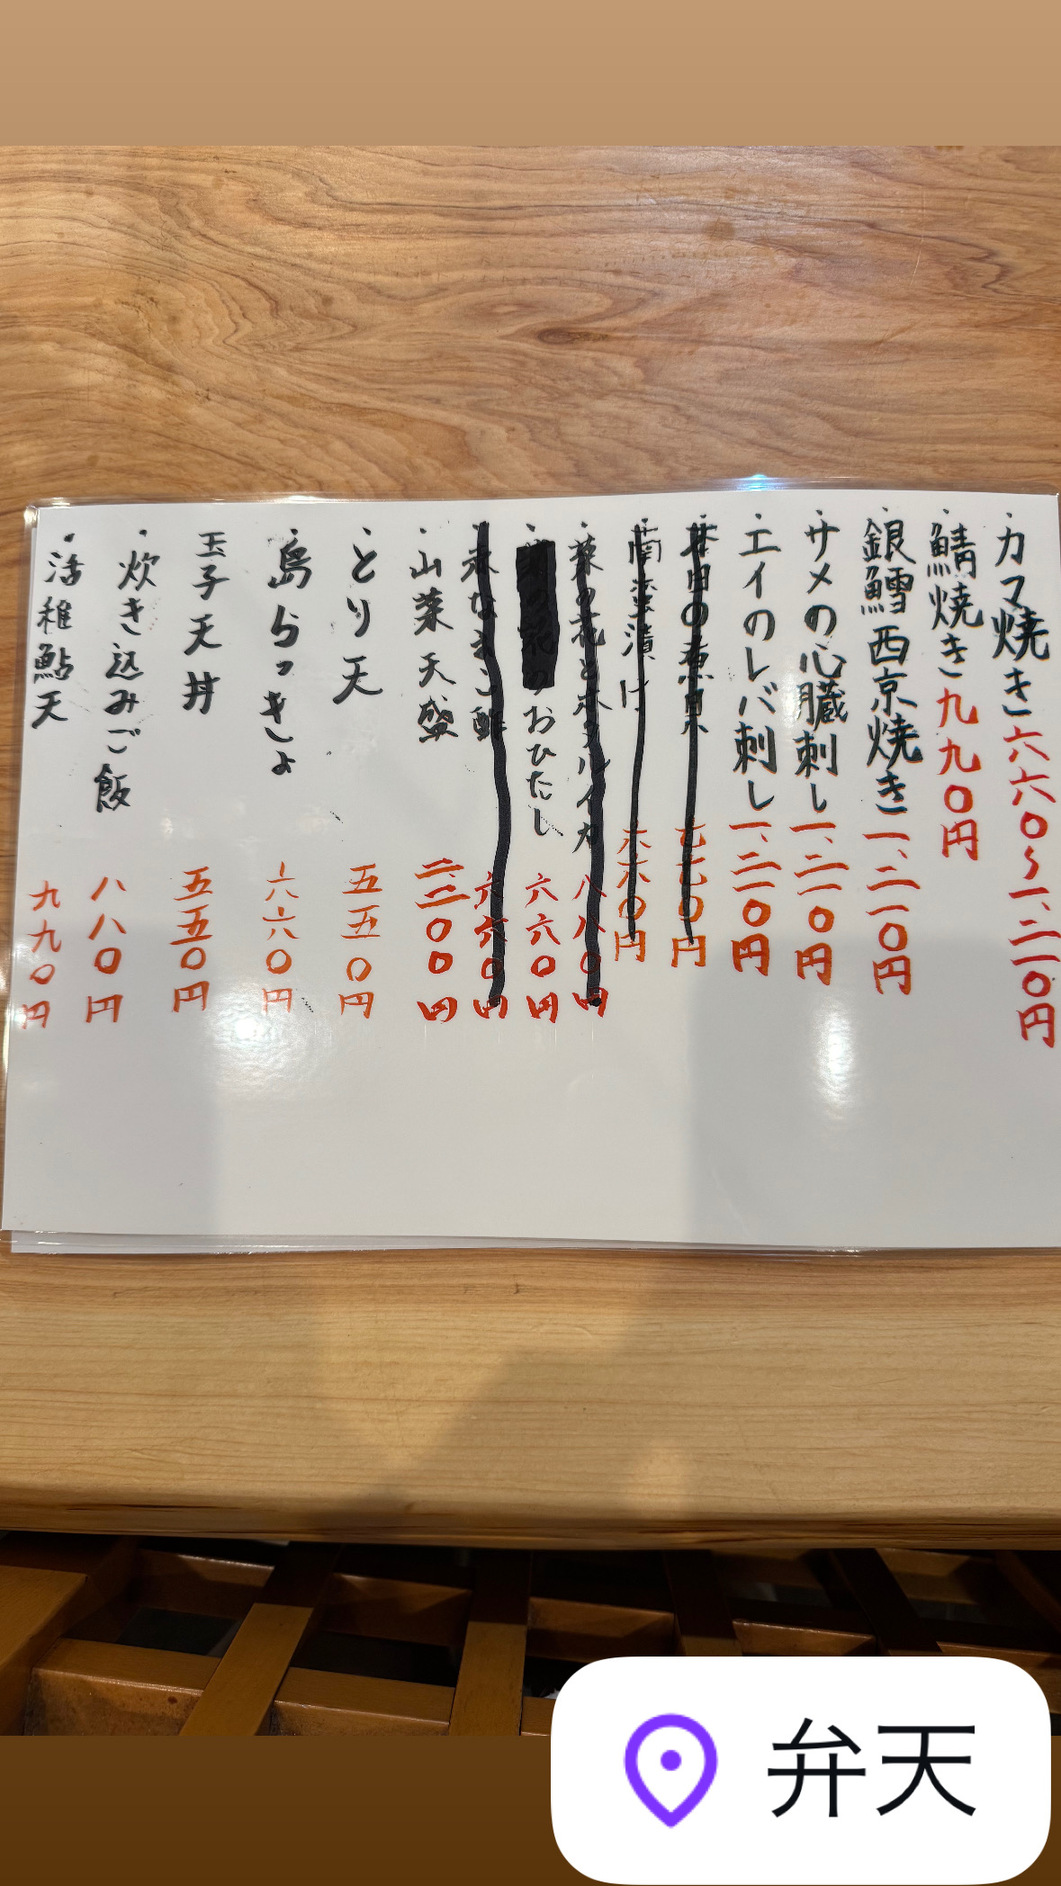 ・カマ焼き 六六〇〜一、二一〇円
・鯖焼き 九九〇円
・銀鱈西京焼き 一、二一〇円
・サメの心臓刺し 一、二一〇円
・エイのレバ刺し 一、二一〇円
の煮 七七〇円
・南蛮漬け 六六〇円
・菜の花とホタルイカ 八八〇円
のおひたし 六六〇円
・赤なまこ酢 六六〇円
・山菜天盛 二、二〇〇円
・とり天 五五〇円
・島らっきょ 六六〇円
・玉子天丼 五五〇円
・炊き込みご飯 八八〇円
・活稚鮎天 九九〇円
弁天